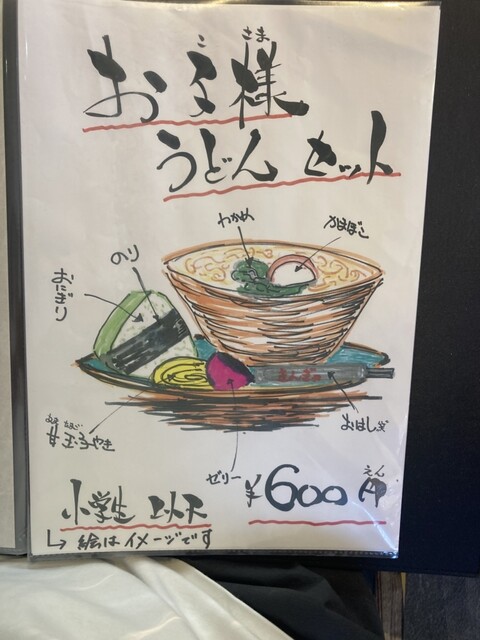 お子様
こ さま
うどんセット
わかめ
かまぼこ
のり
おにぎり
おはし
甘玉子やき
あま たまご
ゼリー
¥600円
えん
小学生以下
↳ 絵はイメージです